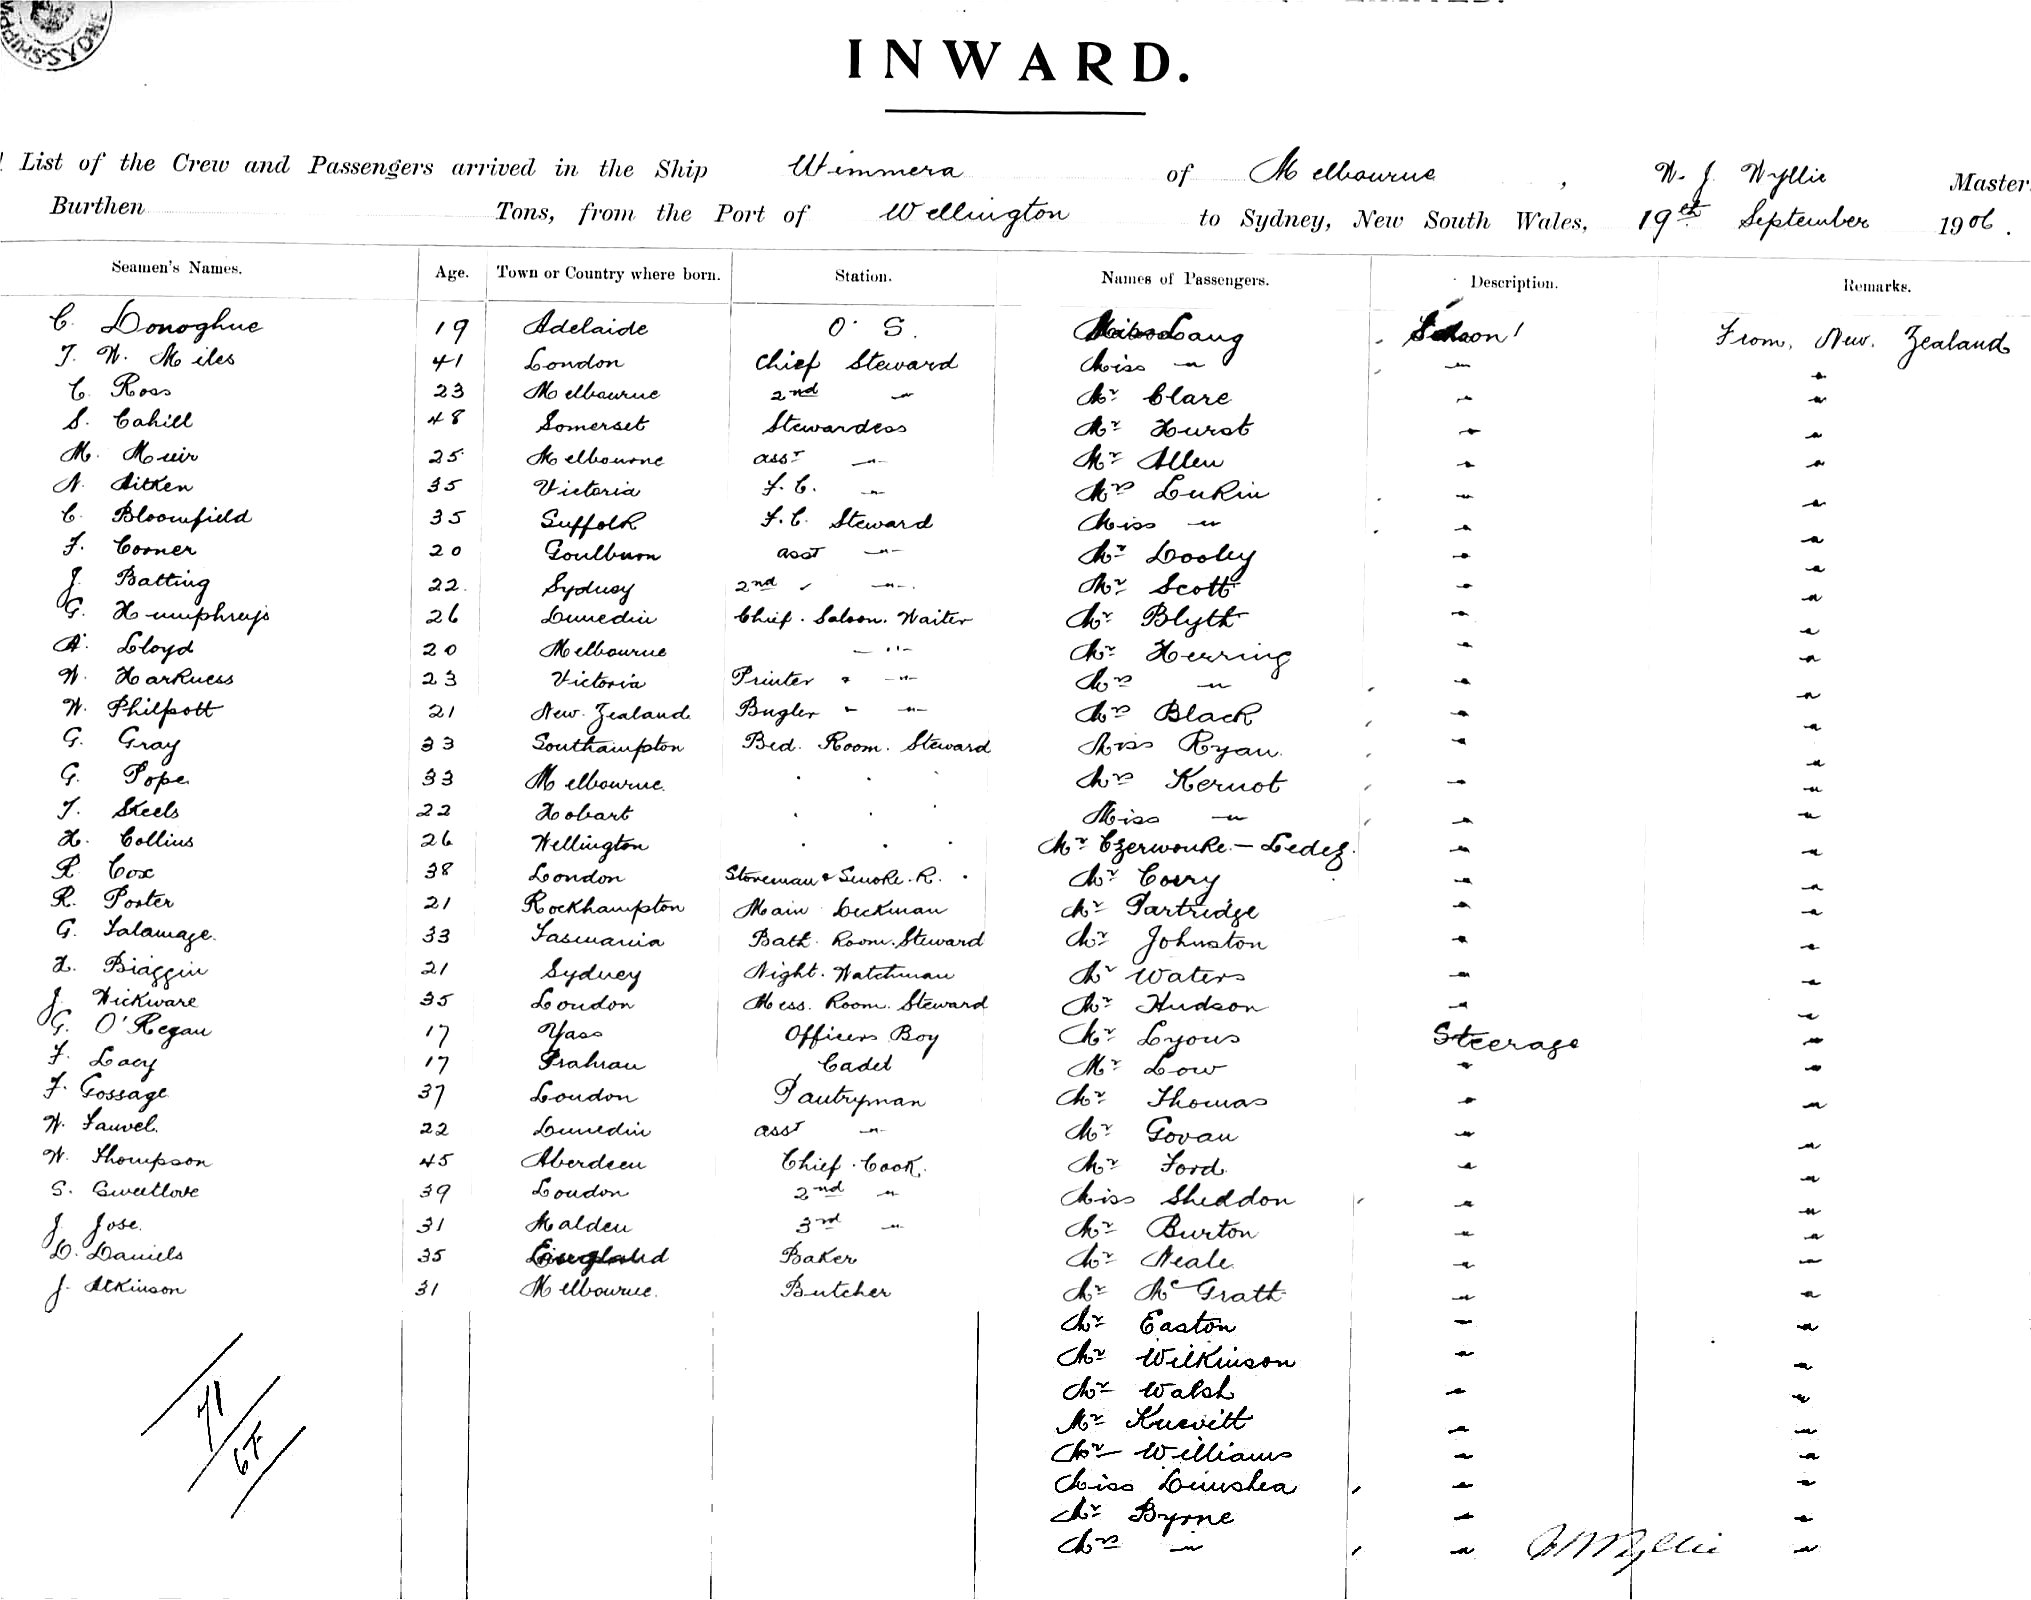 INWARD.
List of the Crew and Passengers arrived in the Ship Wimmera of Melbourne, W. J. Wyllie Master
Burthen Tons, from the Port of Wellington to Sydney, New South Wales, 19th September 1906.
Seamen's Names. Age. Town or Country where born. Station. Names of Passengers. Description. Remarks.
C. Donoghue 19 Adelaide O. S. Lang Saloon From New Zealand
T. W. Miles 41 London Chief Steward Miss " " "
C. Ross 23 Melbourne 2nd " Mr Clare " "
S. Cahill 48 Somerset Stewardess Mr Hurst " "
M. Muir 25 Melbourne asst " Mr Allen " "
N. Aitken 35 Victoria F. C. " Mrs Lukin " "
C. Bloomfield 35 Suffolk F. C. Steward Miss " " "
F. Corner 20 Goulburn asst " Mr Dooley " "
J. Batting 22 Sydney 2nd " Mr Scott " "
G. Humphreys 26 Dunedin Chief Saloon Waiter Mr Blyth " "
A. Lloyd 20 Melbourne " Mr Herring " "
W. Harkness 23 Victoria Printer & " Mrs " " "
W. Philpott 21 New Zealand Bugler " " Mrs Black " "
G. Gray 33 Southampton Bed Room Steward Miss Ryan " "
G. Pope 33 Melbourne " " " Mrs Kernot " "
T. Skeels 22 Hobart " " " Miss " " "
H. Collins 26 Wellington " " " Mr Czerwonke-Ledez " "
R. Cox 38 London Storeman & Smoke R. " Mr Corry " "
R. Porter 21 Rockhampton Main Deckman Mr Partridge " "
G. Talamage 33 Tasmania Bath Room Steward Mr Johnston " "
L. Biaggin 21 Sydney Night Watchman Mr Waters " "
J. Wickware 35 London Mess Room Steward Mr Hudson " "
G. O'Regan 17 Yass Officers Boy Mr Lyons Steerage "
F. Lacy 17 Prahran Cadet Mr Low " "
F. Gossage 37 London Pantryman Mr Thomas " "
W. Fauvel 22 Dunedin asst " Mr Govan " "
W. Thompson 45 Aberdeen Chief Cook Mr Ford " "
S. Sweetlove 39 London 2nd " Miss Sheddon " "
J. Jose 31 Malden 3rd " Mr Burton " "
D. Daniels 35 England Baker Mr Neale " "
J. Atkinson 31 Melbourne Butcher Mr McGrath " "
Mr Easton " "
Mr Wilkinson " "
Mr Walsh " "
Mr Knevitt " "
Mr Williams " "
Miss Dunshea " "
Mr Byrne " "
Mrs " " "
71
64
W J Wyllie